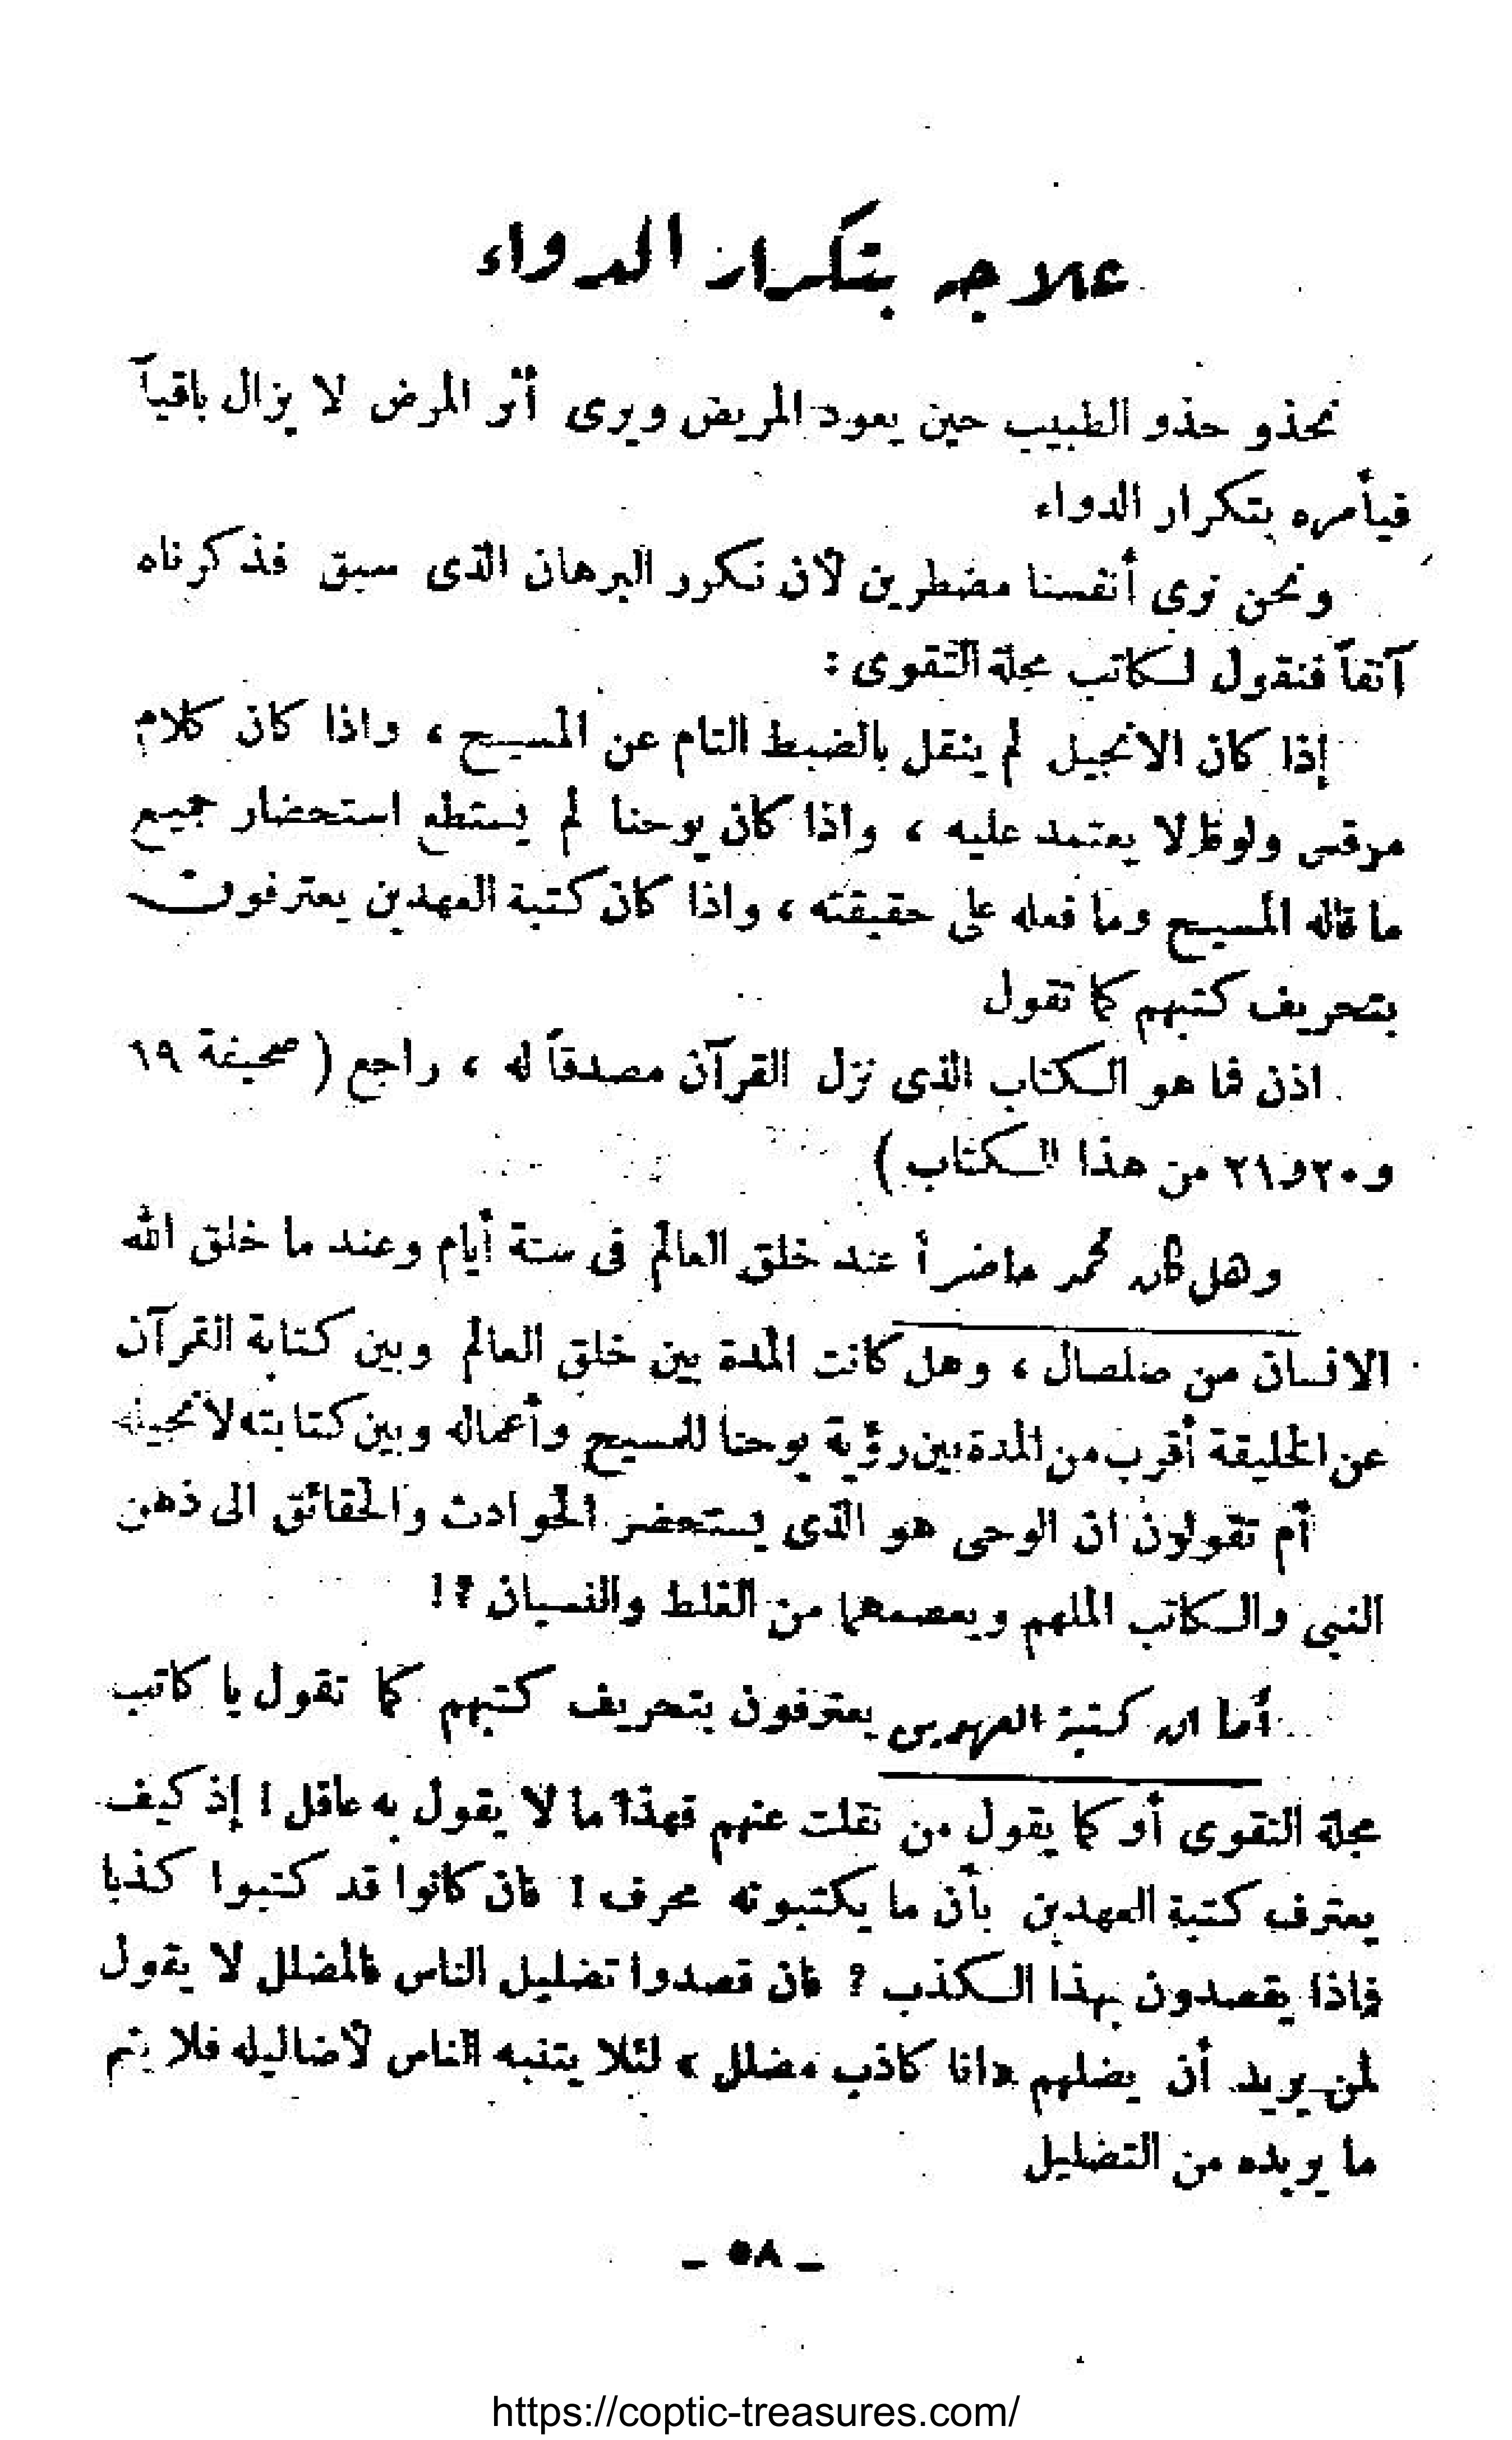 علاجه بتكرار الدواء
نحذو حذو الطبيب حين يعود المريض ويرى أثر المرض لا يزال باقياً
فيأمره بتكرار الدواء
ونحن نرى أنفسنا مضطرين لأن نكرر البرهان الذى سبق فذكرناه
آنفاً فنقول لكاتب مجلة التقوى :
إذا كان الانجيل لم ينقل بالضبط التام عن المسيح ، واذا كان كلام
مرقس ولوقا لا يعتمد عليه ، واذا كان يوحنا لم يستطع استحضار جميع
ما قاله المسيح وما فعله على حقيقته ، واذا كان كتبة العهدين يعترفون
بتحريف كتبهم كما تقول
اذن فما هو الكتاب الذى نزل القرآن مصدقاً له ، راجع ( صحيفة ١٩
و٢٠و٢١ من هذا الكتاب )
وهل كان محمد حاضراً عند خلق العالم فى ستة أيام وعند ما خلق الله
الانسان من صلصال ، وهل كانت المدة بين خلق العالم وبين كتابة القرآن
عن الخليقة أقرب من المدة بين رؤية يوحنا للمسيح وأعماله وبين كتابته لانجيله
أم تقولون ان الوحى هو الذى يستحضر الحوادث والحقائق الى ذهن
النبى والكاتب الملهم ويعصمهما من الغلط والنسيان ؟!
أما ان كتبة العهدين يعترفون بتحريف كتبهم كما تقول يا كاتب
مجلة التقوى أو كما يقول من نقلت عنهم فهذا ما لا يقول به عاقل ! إذ كيف
يعترف كتبة العهدين بأن ما يكتبونه محرف ! فان كانوا قد كتبوا كذبا
فماذا يقصدون بهذا الكذب ؟ فان قصدوا تضليل الناس فالمضلل لا يقول
لمن يريد أن يضلهم «انا كاذب مضلل» لئلا يتنبه الناس لأضاليله فلا يتم
ما يريده من التضليل
– ٥٨ –
https://coptic-treasures.com/